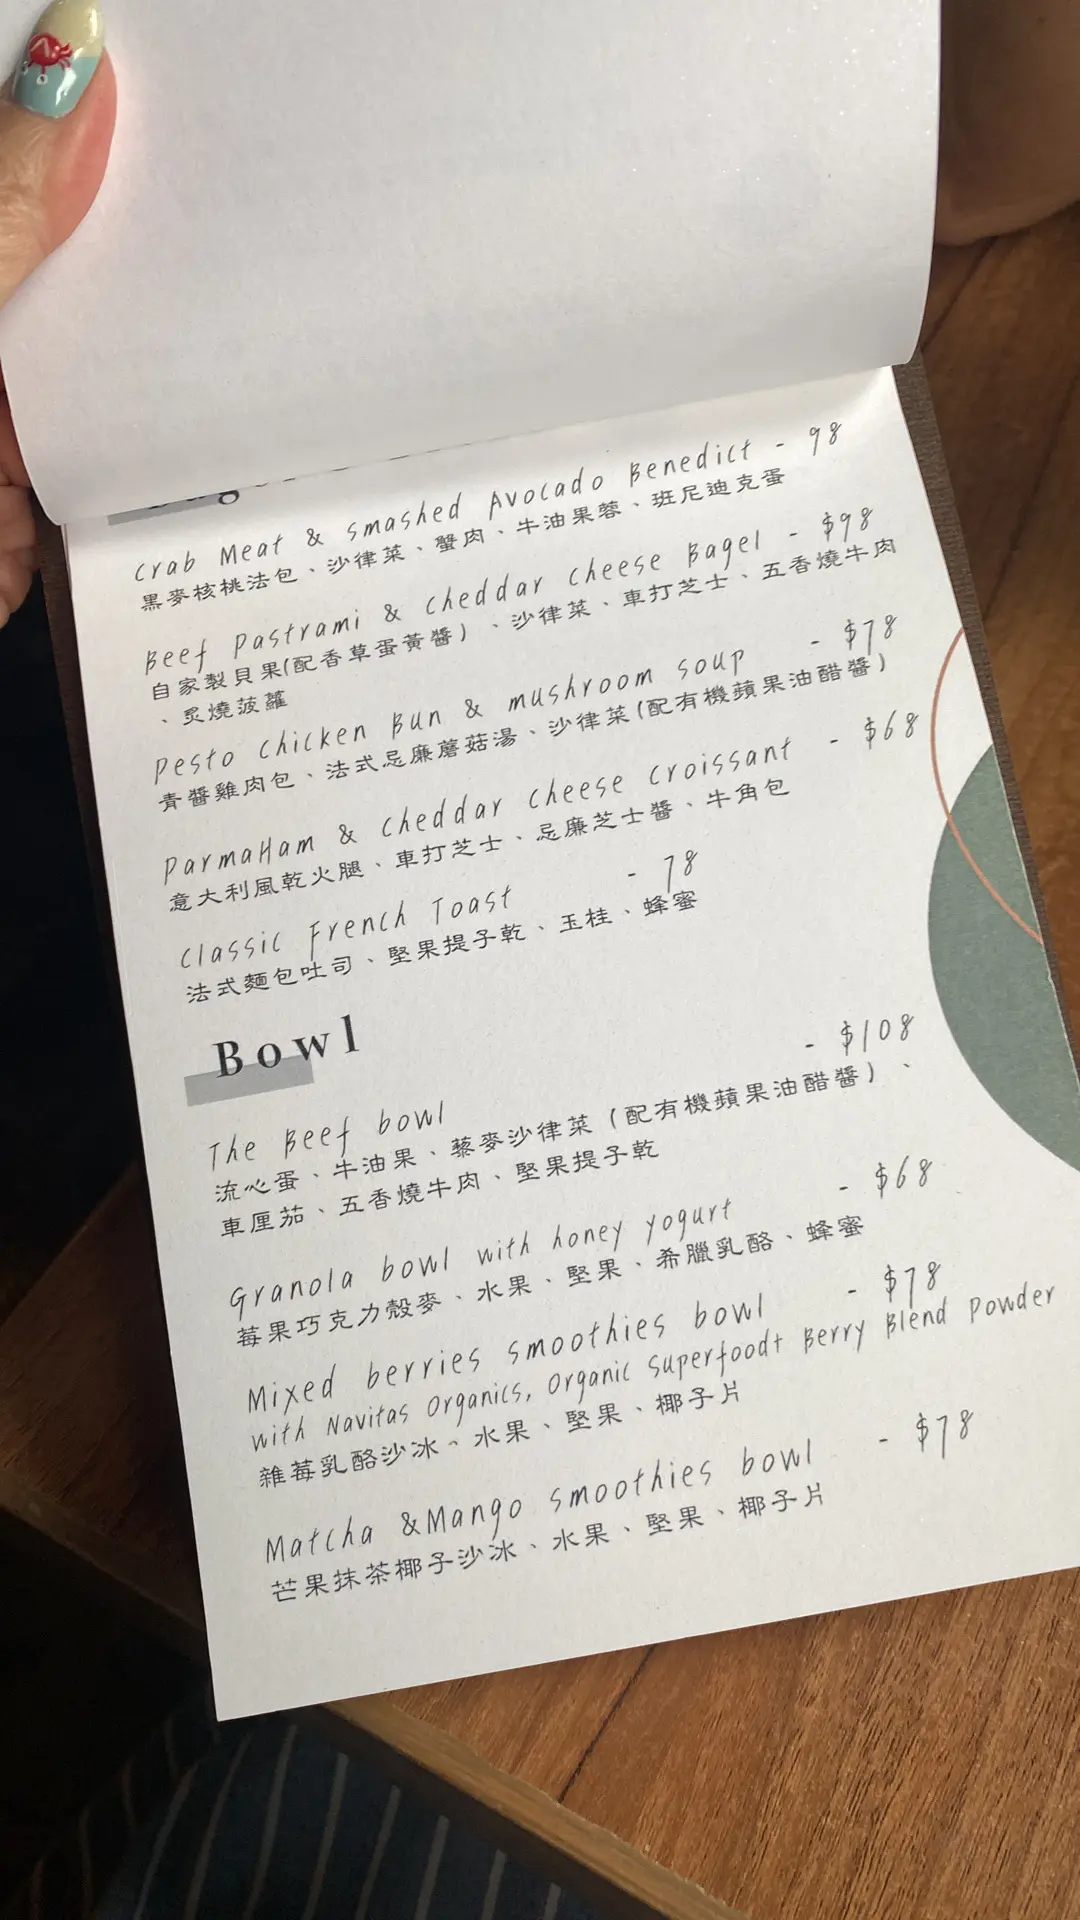 Crab Meat & smashed Avocado Benedict - 98
黑麥核桃法包、沙律菜、蟹肉、牛油果蓉、班尼迪克蛋
Beef Pastrami & Cheddar Cheese Bagel - $98
自家製貝果(配香草蛋黃醬)、沙律菜、車打芝士、五香燒牛肉
、炙燒菠蘿
Pesto Chicken Bun & mushroom soup - $78
青醬雞肉包、法式忌廉蘑菇湯、沙律菜(配有機蘋果油醋醬)
ParmaHam & Cheddar Cheese Croissant - $68
意大利風乾火腿、車打芝士、忌廉芝士醬、牛角包
Classic French Toast - 78
法式麵包吐司、堅果提子乾、玉桂、蜂蜜
Bowl
The Beef bowl - $108
流心蛋、牛油果、藜麥沙律菜(配有機蘋果油醋醬)、
車厘茄、五香燒牛肉、堅果提子乾
Granola bowl with honey yogurt - $68
莓果巧克力殼麥、水果、堅果、希臘乳酪、蜂蜜
Mixed berries smoothies bowl - $78
with Navitas Organics, Organic Superfood+ Berry Blend Powder
雜莓乳酪沙冰、水果、堅果、椰子片
Matcha &Mango smoothies bowl - $78
芒果抹茶椰子沙冰、水果、堅果、椰子片